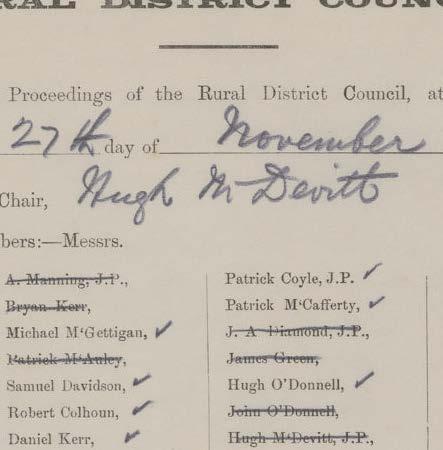 RAL DISTRICT COUNC
Proceedings of the Rural District Council, at
27th day of November
Chair, Hugh McDevitt
bers:—Messrs.
A. Manning, J.P.,
Bryan Kerr,
Michael M'Gettigan, ✓
Patrick M'Auley,
Samuel Davidson, ✓
Robert Colhoun, ✓
Daniel Kerr, ✓
Patrick Coyle, J.P. ✓
Patrick M'Cafferty, ✓
J. A Diamond, J.P.,
James Green,
Hugh O'Donnell, ✓
John O'Donnell,
Hugh M'Devitt, J.P.,